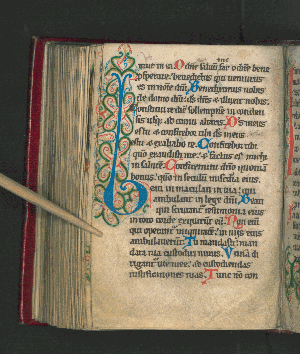 O dñe saluū fac o dñe bene
prosperare. benedictus qui uenturus
es in noīe dñi. Benediximus uobis
de domo dñi ds dñs & illuxit nobis.
Constituite diē sollempnē in conden
sis usq; ad cornu altaris. Ds meus
es tu & confitebor tibi ds meus
es tu & exaltabo te. Confitebor tibi
qm̄ exaudisti me. & factus es michi
in salutē. Confitemini dño quoniā
bonus. qm̄ in seculū miscd̄ia eius.
Beati immaculati in uia: qui
ambulant in lege dñi. Beati
qui scrutant̄ testimonia eius
in toto corde exquirunt eū. Non enī
qui operant̄ iniquitatē. in uiis eius
ambulauerūt. Tu mandasti man
data tua custodiri nimis. Vtinā di
rigant̄ uie mee. ad custodiendas
iustificationes tuas. Tunc nō con